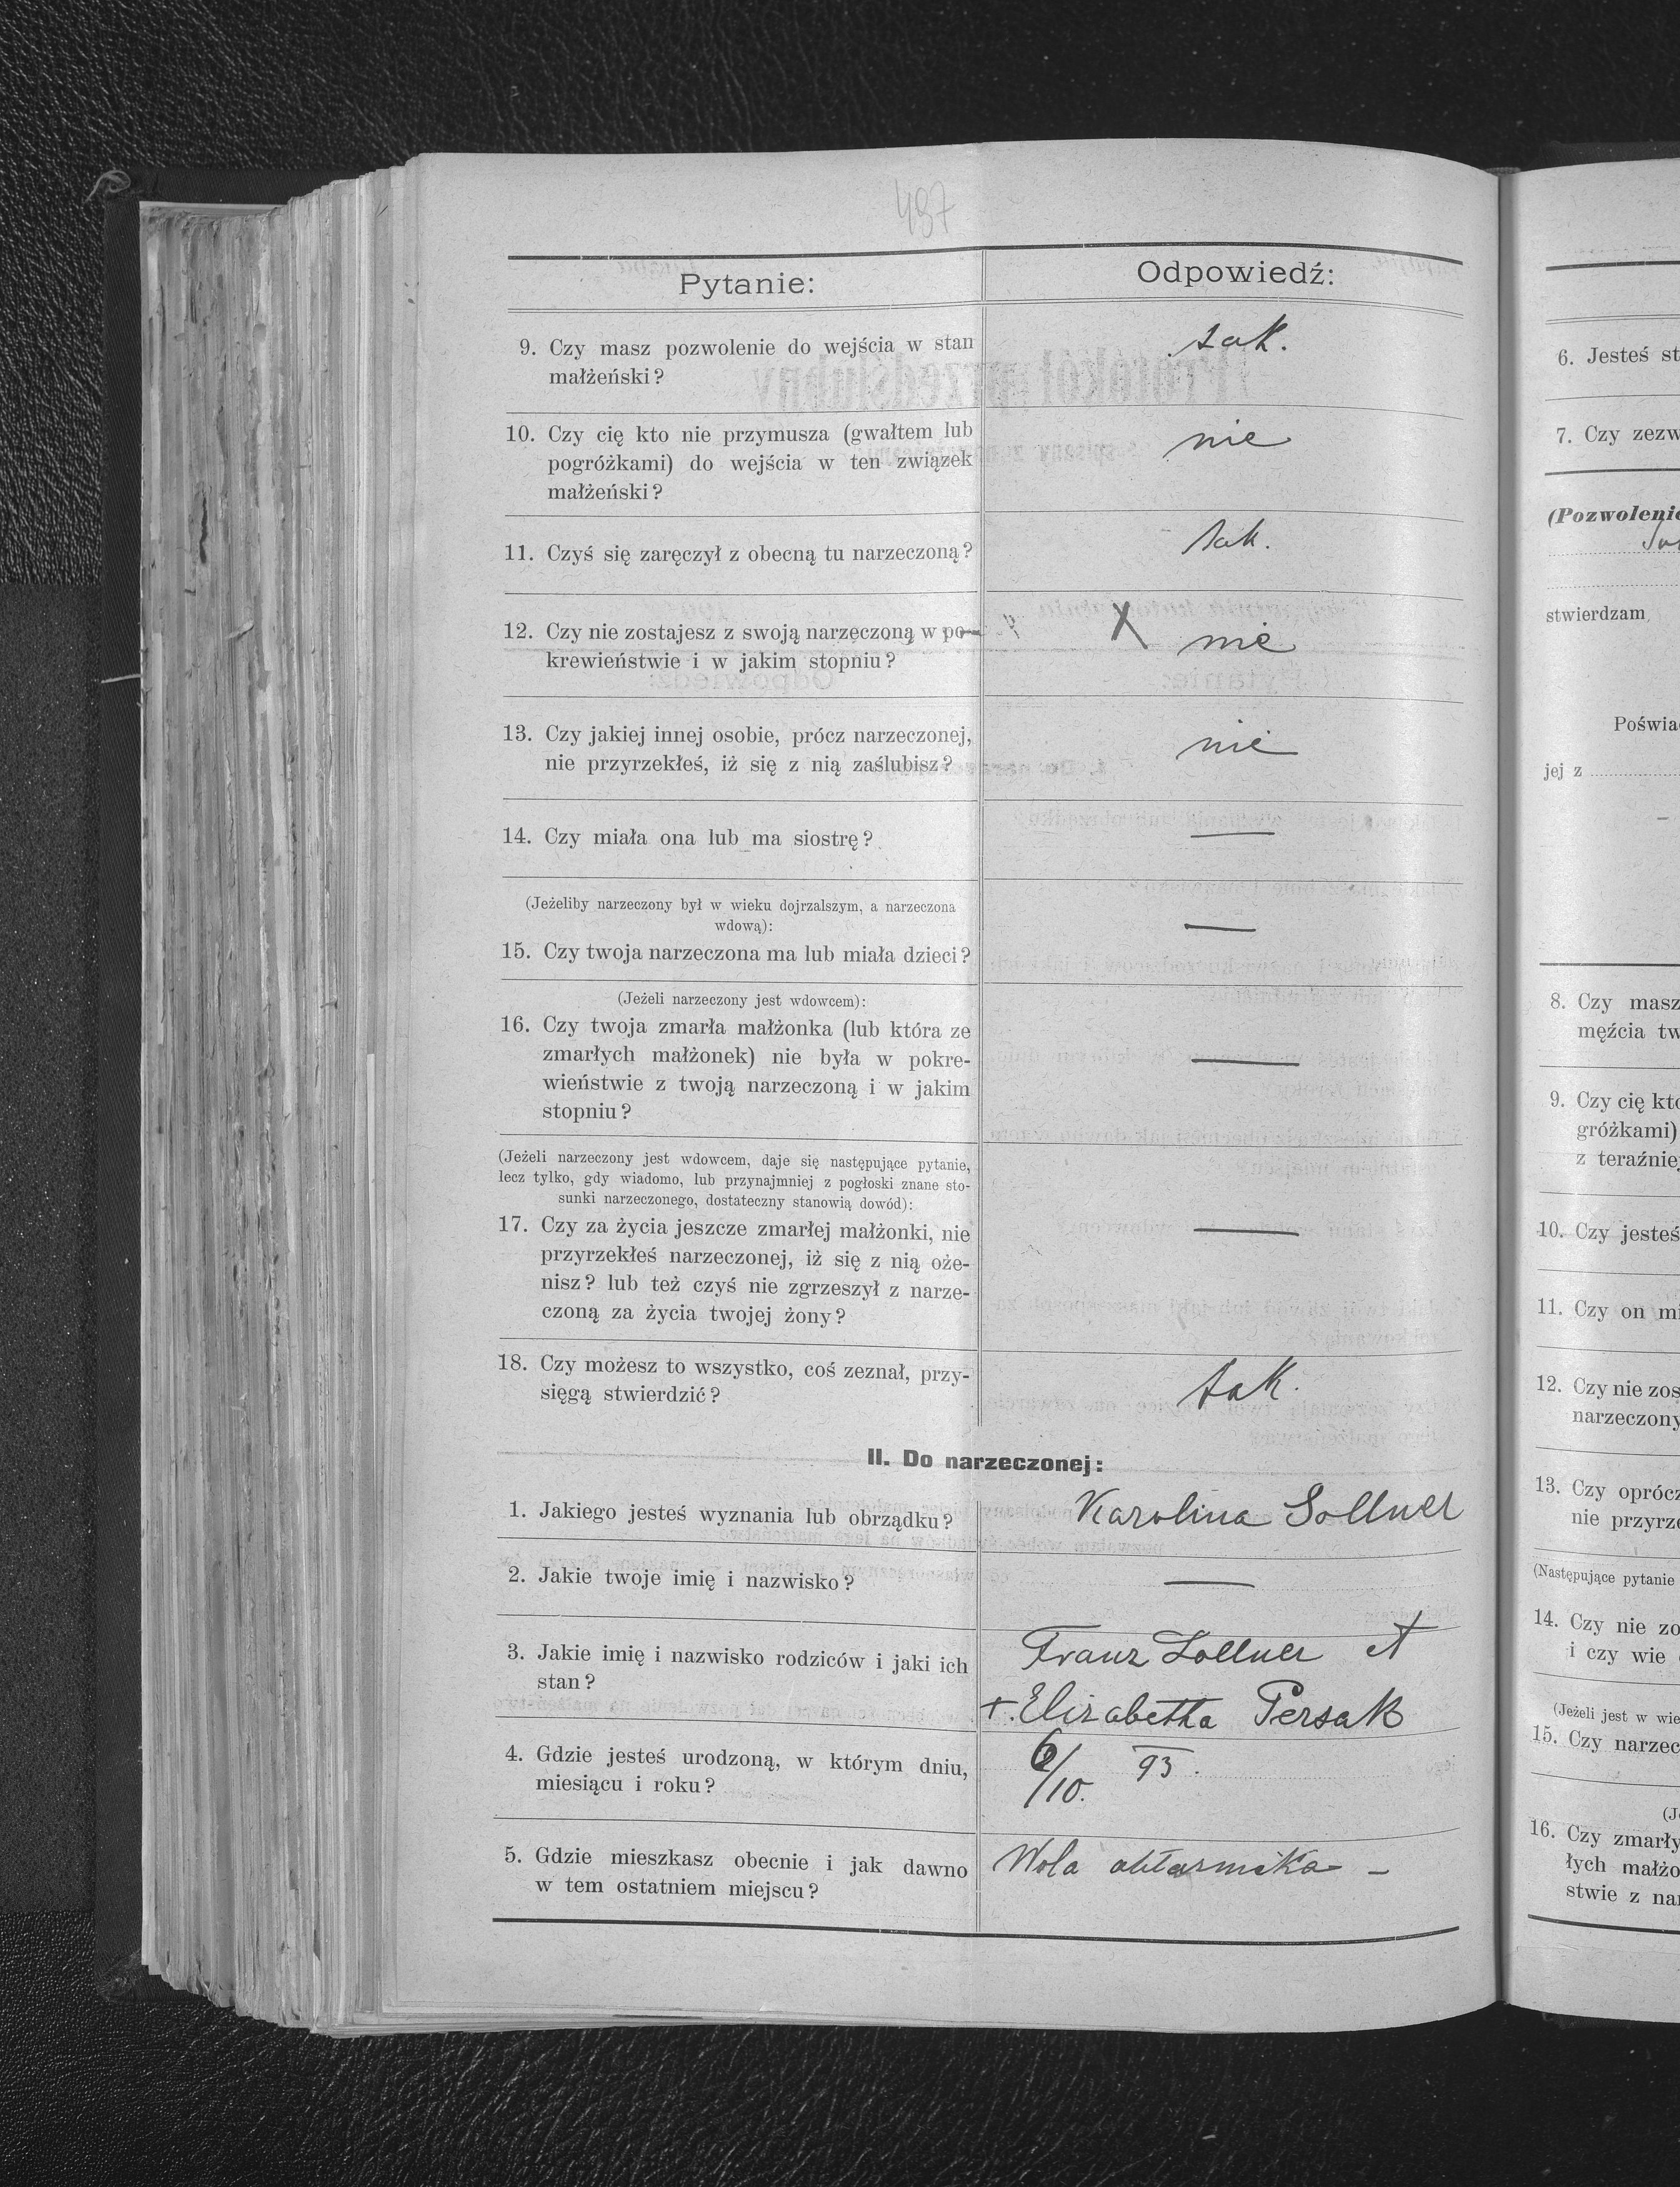 497
Pytanie:
Odpowiedź:
9. Czy masz pozwolenie do wejścia w stan
małżeński?
tak.
10. Czy cię kto nie przymusza (gwałtem lub
pogróżkami) do wejścia w ten związek
małżeński?
nie
11. Czyś się zaręczył z obecną tu narzeczoną?
tak.
12. Czy nie zostajesz z swoją narzeczoną w po-
krewieństwie i w jakim stopniu?
X nie
13. Czy jakiej innej osobie, prócz narzeczonej,
nie przyrzekłeś, iż się z nią zaślubisz?
nie
14. Czy miała ona lub ma siostrę?
—
(Jeżeliby narzeczony był w wieku dojrzalszym, a narzeczona
wdową):
15. Czy twoja narzeczona ma lub miała dzieci?
—
(Jeżeli narzeczony jest wdowcem):
16. Czy twoja zmarła małżonka (lub która ze
zmarłych małżonek) nie była w pokre-
wieństwie z twoją narzeczoną i w jakim
stopniu?
—
(Jeżeli narzeczony jest wdowcem, daje się następujące pytanie,
lecz tylko, gdy wiadomo, lub przynajmniej z pogłoski znane sto-
sunki narzeczonego, dostateczny stanowią dowód):
17. Czy za życia jeszcze zmarłej małżonki, nie
przyrzekłeś narzeczonej, iż się z nią oże-
nisz? lub też czyś nie zgrzeszył z narze-
czoną za życia twojej żony?
—
18. Czy możesz to wszystko, coś zeznał, przy-
sięgą stwierdzić?
tak.
II. Do narzeczonej:
1. Jakiego jesteś wyznania lub obrządku?
Karolina Sollner
2. Jakie twoje imię i nazwisko?
—
3. Jakie imię i nazwisko rodziców i jaki ich
stan?
Franz Sollner et
+. Elizabetha Persak
4. Gdzie jesteś urodzoną, w którym dniu,
miesiącu i roku?
6/10. 93.
5. Gdzie mieszkasz obecnie i jak dawno
w tem ostatniem miejscu?
Wola –
6. Jesteś st
7. Czy zezw
(Pozwolenie
stwierdzam
Poświa
jej z
8. Czy masz
męźcia tw
9. Czy cię kto
gróżkami)
z teraźniej
10. Czy jesteś
11. Czy on mi
12. Czy nie zos
narzeczony
13. Czy oprócz
nie przyrze
(Następujące pytanie
14. Czy nie zo
i czy wie
(Jeżeli jest w wie
15. Czy narzec
(J
16. Czy zmarły
łych małżo
stwie z nar